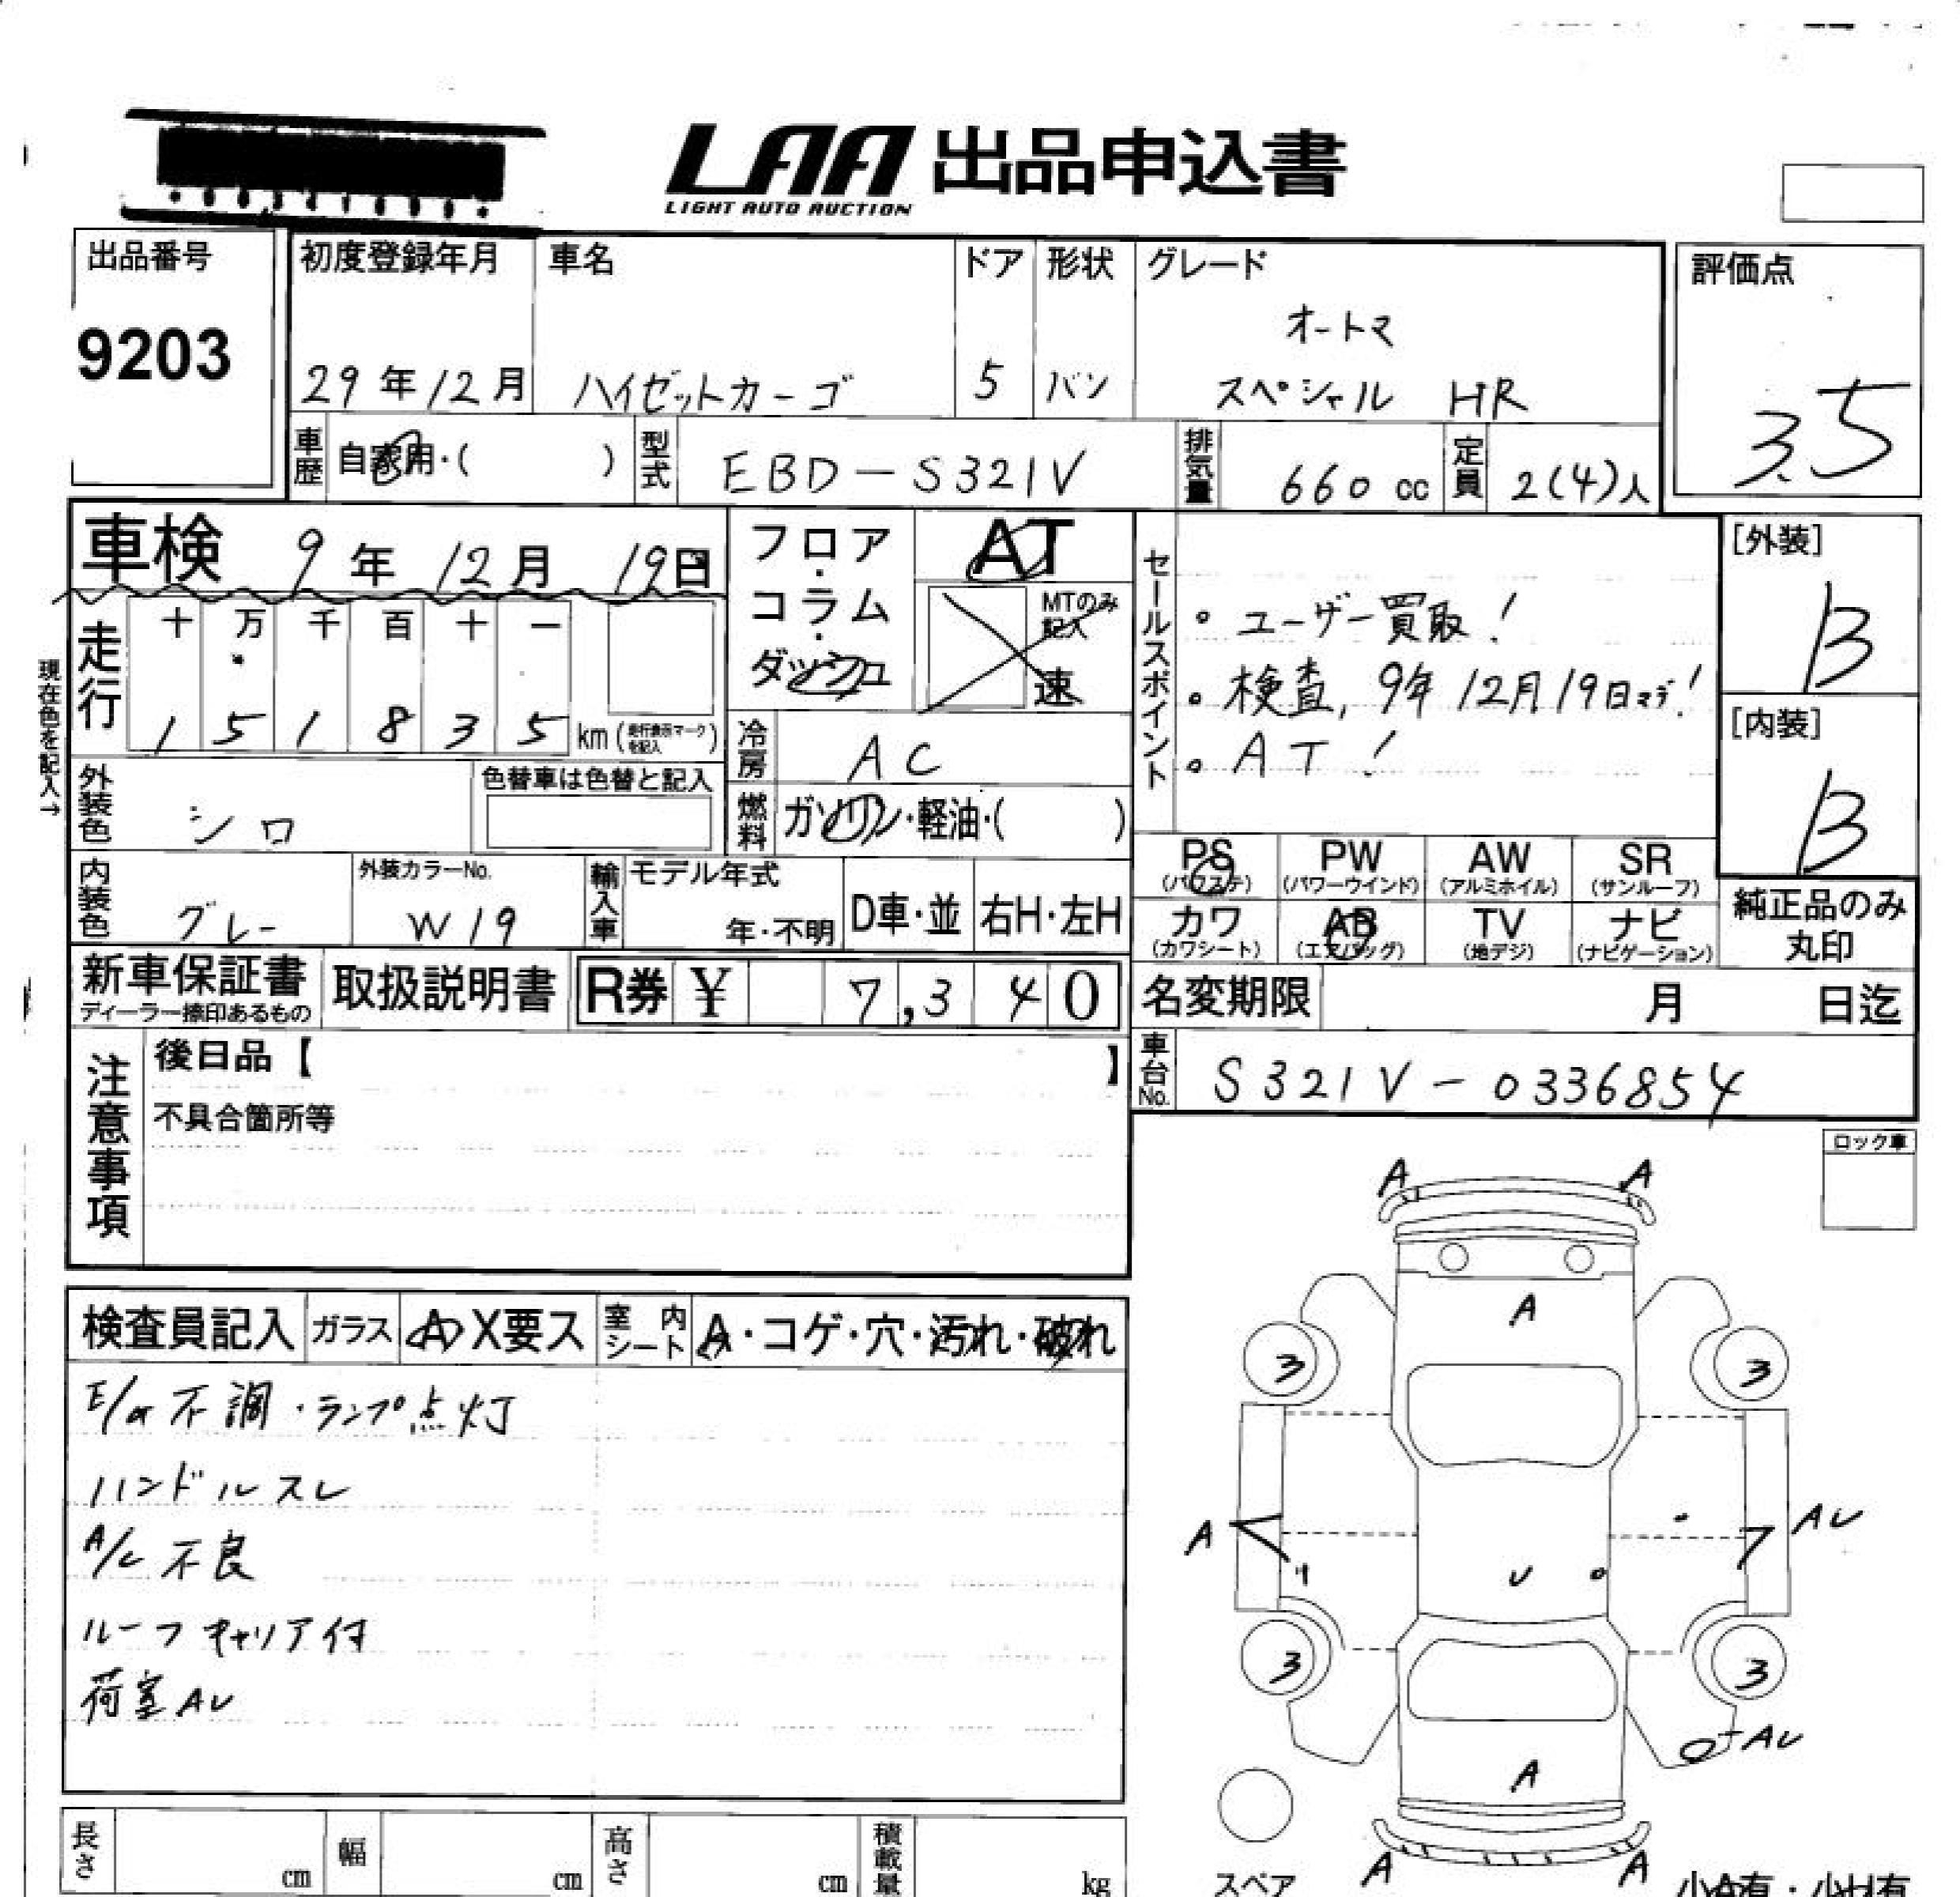 LAA 出品申込書
LIGHT AUTO AUCTION
出品番号
9203
初度登録年月
29年12月
車名
ハイゼットカーゴ
ドア
5
形状
バン
グレード
オートマ
スペシャル HR
評価点
3.5
車歴
自家用・( )
型式
EBD-S321V
排気量
660 cc
定員
2(4)人
車検 9年12月19日
フロア・コラム・ダッシュ
AT
MTのみ記入
速
現在色を記入→
走行
十 万 千 百 十 一
1 5 1 8 3 5 km(走行表示マークを記入)
冷房
AC
外装色
シロ
色替車は色替と記入
燃料
ガソリン・軽油・( )
内装色
グレー
外装カラーNo.
W19
輸入車
モデル年式
年・不明
D車・並
右H・左H
セールスポイント
・ユーザー買取!
・検査,9年12月19日マデ!
・AT!
[外装]
B
[内装]
B
PS (パワステ)
PW (パワーウインド)
AW (アルミホイル)
SR (サンルーフ)
カワ (カワシート)
AB (エアバッグ)
TV (地デジ)
ナビ (ナビゲーション)
純正品のみ丸印
新車保証書
ディーラー捺印あるもの
取扱説明書
R券 ¥ 7,340
名変期限 月 日迄
車台No.
S321V-0336854
注意事項
後日品【 】
不具合箇所等
ロック車
検査員記入
ガラス
A X要ス
室内シート
A・コゲ・穴・汚れ・破れ
不調・ランプ点灯
ハンドルスレ
A/C不良
ルーフキャリア付
荷室AU
A A
A
3 3
A AU
U
3 3
AU
A
A A
スペア
小A有・小U有
長さ cm
幅 cm
高さ cm
積載量 kg